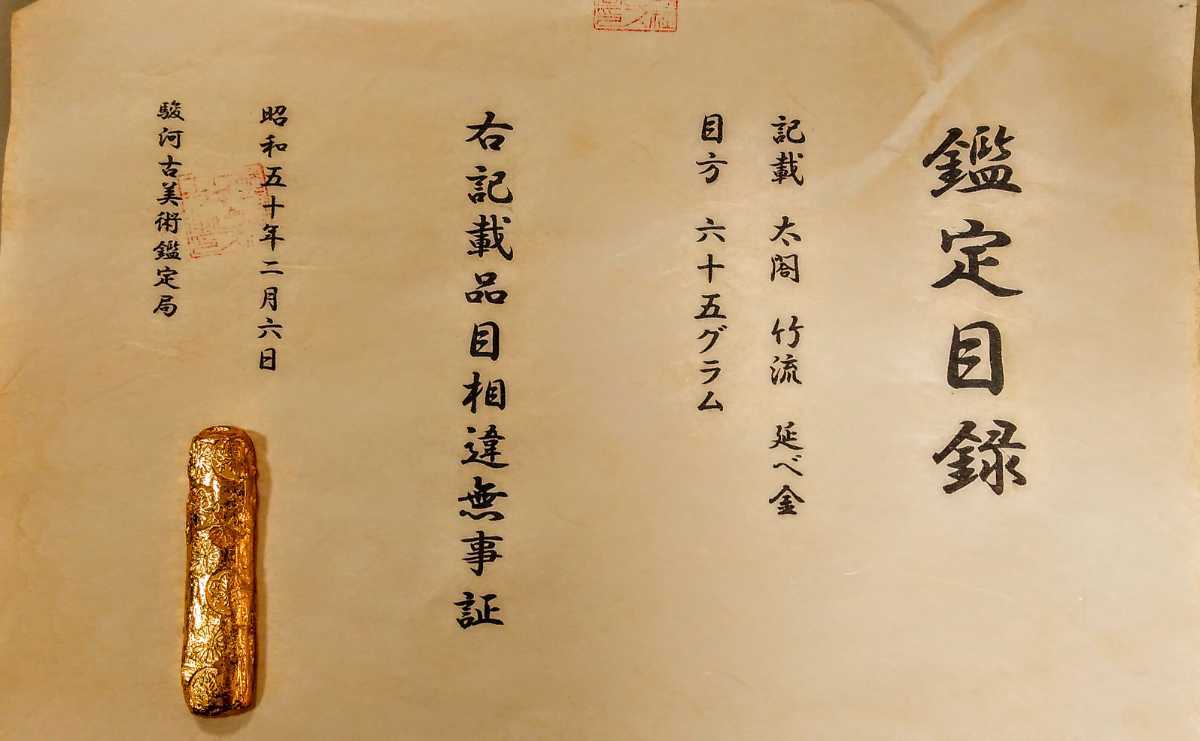 鑑定目録
記載 太閤 竹流 延べ金
目方 六十五グラム
右記載品目相違無事証
昭和五十年二月六日
駿河古美術鑑定局